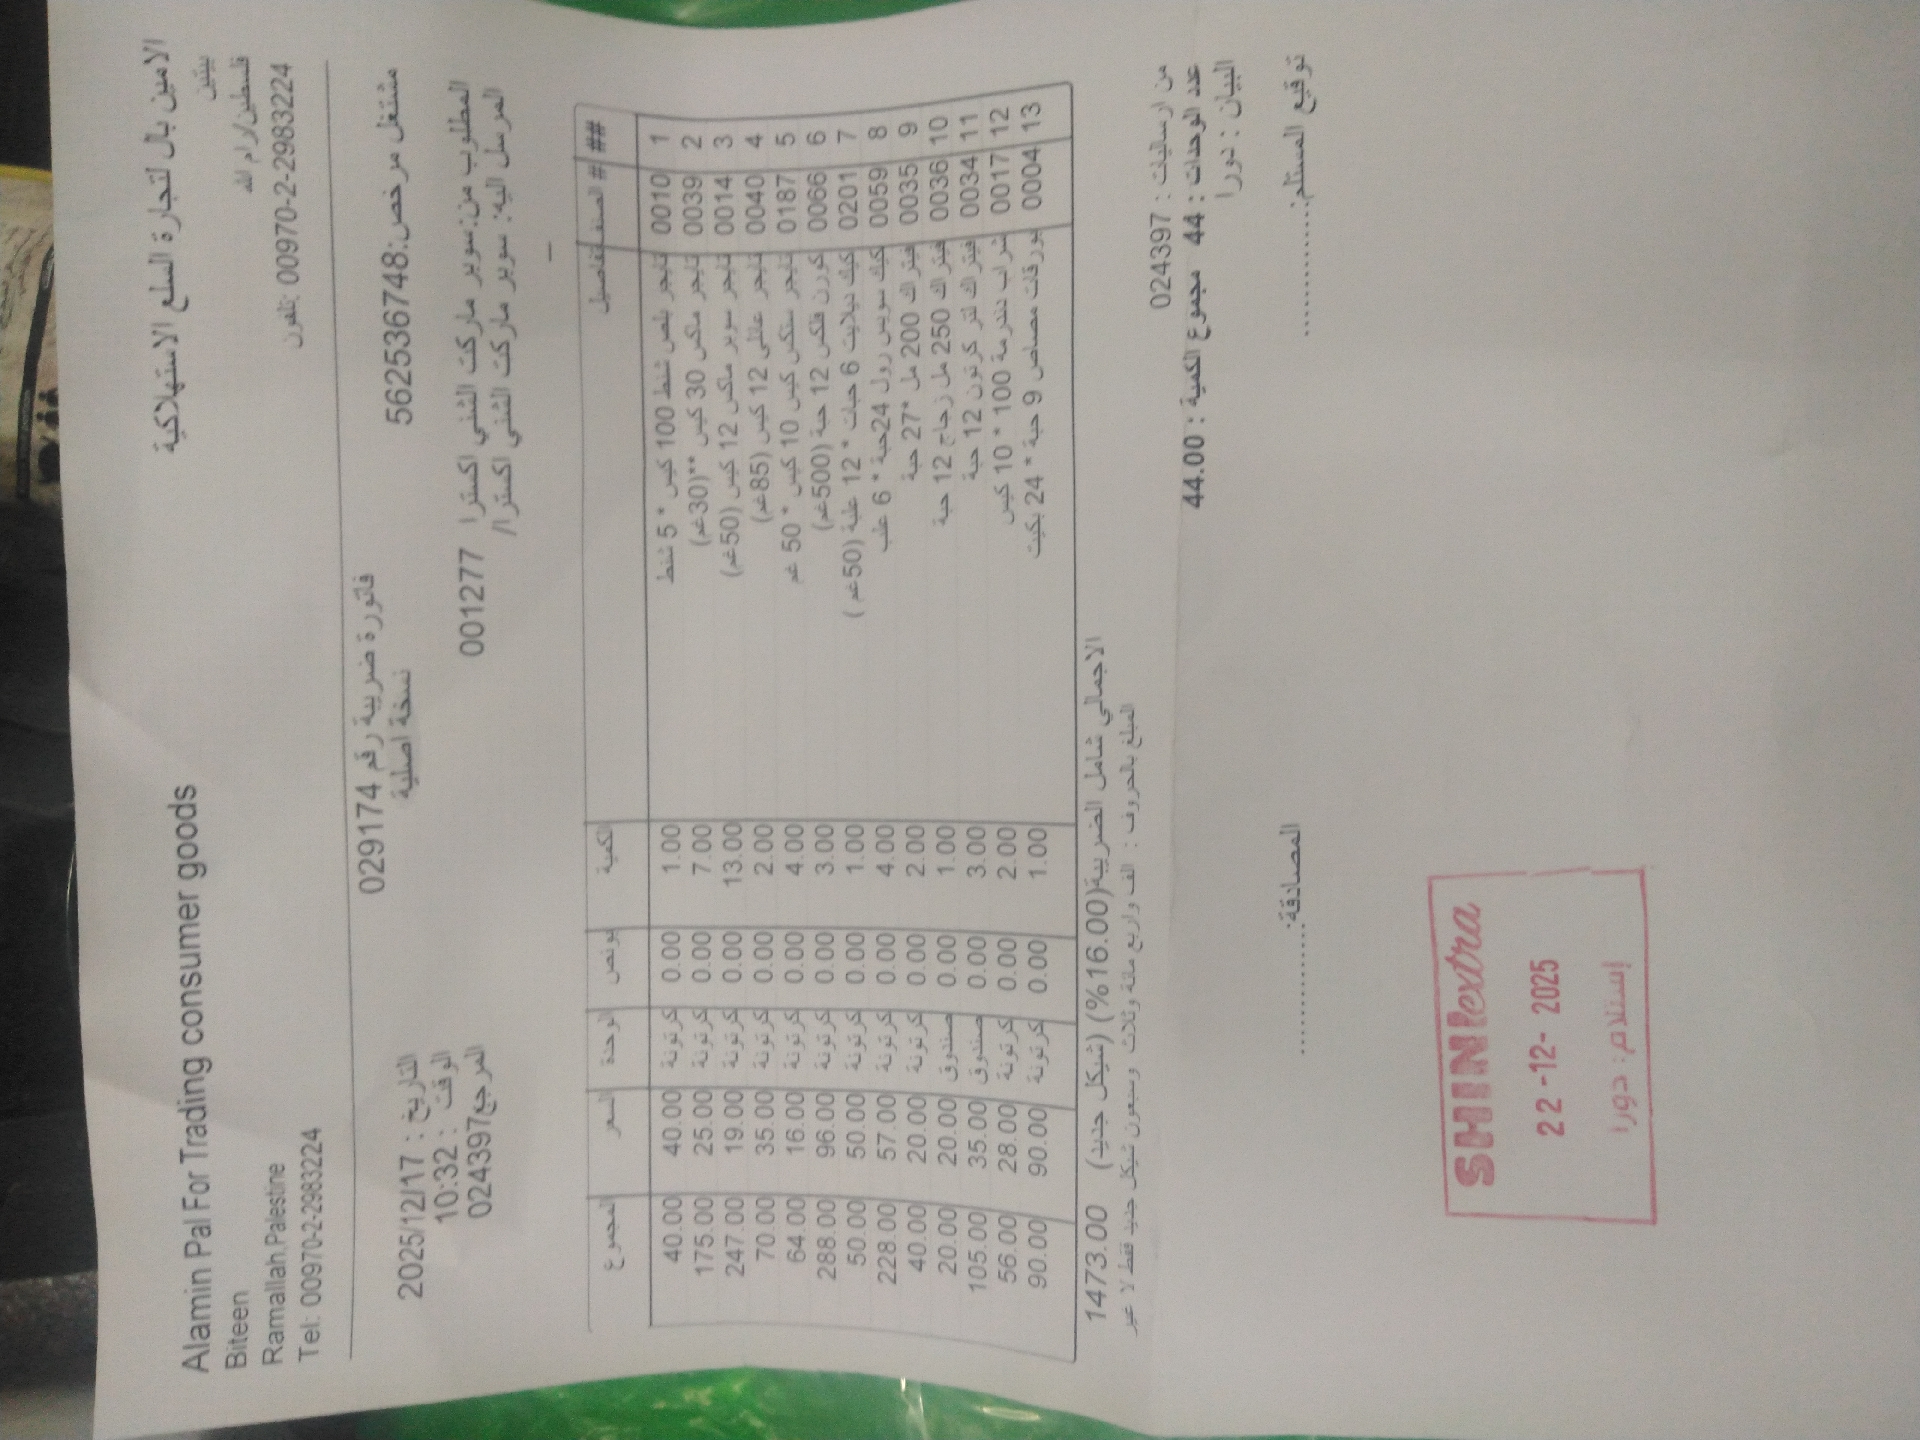 الامين بال لتجارة السلع الاستهلاكية
بيتين
فلسطين/رام الله
تلفون: 00970-2-2983224
Alamin Pal For Trading consumer goods
Biteen
Ramallah,Palestine
Tel: 00970-2-2983224
مشتغل مرخص: 562536748
فاتورة ضريبة رقم 029174
نسخة اصلية
التاريخ : 2025/12/17
الوقت : 10:32
المرجع 024397
المطلوب من: سوبر ماركت الشني اكسترا 001277
المرسل اليه: سوبر ماركت الشني اكسترا/
## # الصنف التفاصيل الكمية بونص الوحدة السعر المجموع
1 0010 تايجر بلص شنط 100 كيس * 5 شنط 1.00 0.00 كرتونة 40.00 40.00
2 0039 تايجر ماكس 30 كيس **(30غم) 7.00 0.00 كرتونة 25.00 175.00
3 0014 تايجر سوبر ماكس 12 كيس (50غم) 13.00 0.00 كرتونة 19.00 247.00
4 0040 تايجر عائلي 12 كيس (85غم) 2.00 0.00 كرتونة 35.00 70.00
5 0187 تايجر ستكس كيس 10 كيس * 50 غم 4.00 0.00 كرتونة 16.00 64.00
6 0066 كورن فلكس 12 حبة (500غم) 3.00 0.00 كرتونة 96.00 288.00
7 0201 كيك ديلايت 6 حبات * 12 علبة (50غم ) 1.00 0.00 كرتونة 50.00 50.00
8 0059 كيك سويس رول 24حبة * 6 علب 4.00 0.00 كرتونة 57.00 228.00
9 0035 فيتراك 200 مل *27 حبة 2.00 0.00 كرتونة 20.00 40.00
10 0036 فيتراك 250 مل زجاج 12 حبة 1.00 0.00 صندوق 20.00 20.00
11 0034 فيتراك لتر كرتون 12 حبة 3.00 0.00 صندوق 35.00 105.00
12 0017 شراب دندرمة 100 * 10 كيس 2.00 0.00 كرتونة 28.00 56.00
13 0004 بورقات مصاص 9 حبة * 24 بكيت 1.00 0.00 كرتونة 90.00 90.00
الاجمالي شامل الضريبة(16.00%) (شيكل جديد) 1473.00
المبلغ بالحروف : الف واربع مائة وثلاث وسبعون شيكل جديد فقط لا غير
من ارساليات : 024397
عدد الوحدات : 44 مجموع الكمية : 44.00
البيان : دورا
توقيع المستلم:............
المصادقة:............
SHINI extra
22-12- 2025
إستلام: دورا